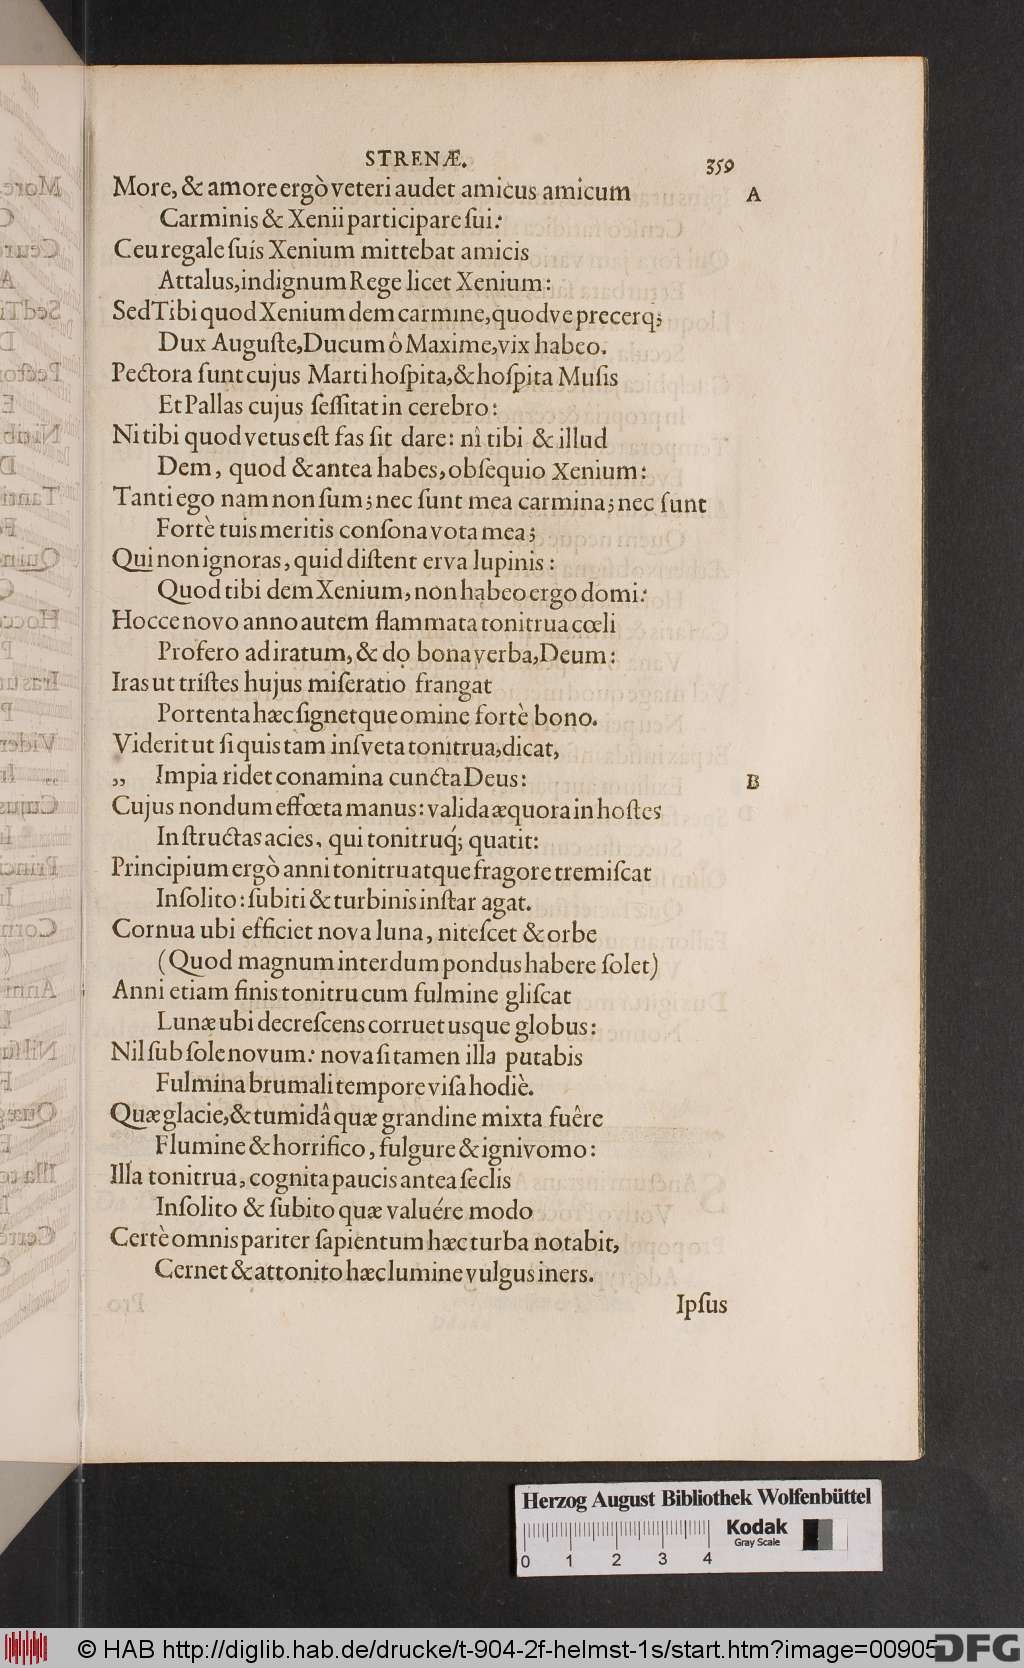 STRENÆ. 359
More, & amore ergò veteri audet amicus amicum A
Carminis & Xenii participare ſui:
Ceu regale ſuís Xenium mittebat amicis
Attalus, indignum Rege licet Xenium:
Sed Tibi quod Xenium dem carmine, quodve precerq;
Dux Auguſte, Ducum ô Maxime, vix habeo.
Pectora ſunt cujus Marti hoſpita, & hoſpita Muſis
Et Pallas cujus ſeſſitat in cerebro:
Ni tibi quod vetus eſt fas ſit dare: nî tibi & illud
Dem, quod & antea habes, obſequio Xenium:
Tanti ego nam non ſum; nec ſunt mea carmina; nec ſunt
Fortè tuis meritis conſona vota mea;
Qui non ignoras, quid diſtent erva lupinis:
Quod tibi dem Xenium, non habeo ergo domi:
Hocce novo anno autem flammata tonitrua cœli
Profero ad iratum, & do bona verba, Deum:
Iras ut triſtes hujus miſeratio frangat
Portenta hæc ſignetque omine fortè bono.
Viderit ut ſi quis tam inſveta tonitrua, dicat,
„ Impia ridet conamina cuncta Deus: B
Cujus nondum effœta manus: valida æquora in hoſtes
Inſtructas acies, qui tonitruq́; quatit:
Principium ergò anni tonitru atque fragore tremiſcat
Inſolito: ſubiti & turbinis inſtar agat.
Cornua ubi efficiet nova luna, niteſcet & orbe
(Quod magnum interdum pondus habere ſolet)
Anni etiam finis tonitru cum fulmine gliſcat
Lunæ ubi decreſcens corruet usque globus:
Nil ſub ſole novum: nova ſi tamen illa putabis
Fulmina brumali tempore viſa hodiè.
Quæ glacie, & tumidâ quæ grandine mixta fuêre
Flumine & horrifico, fulgure & ignivomo:
Illa tonitrua, cognita paucis antea ſeclis
Inſolito & ſubito quæ valuére modo
Certè omnis pariter ſapientum hæc turba notabit,
Cernet & attonito hæc lumine vulgus iners.
Ipſus
Herzog August Bibliothek Wolfenbüttel
Kodak
Gray Scale
0 1 2 3 4
© HAB http://diglib.hab.de/drucke/t-904-2f-helmst-1s/start.htm?image=00905
DFG